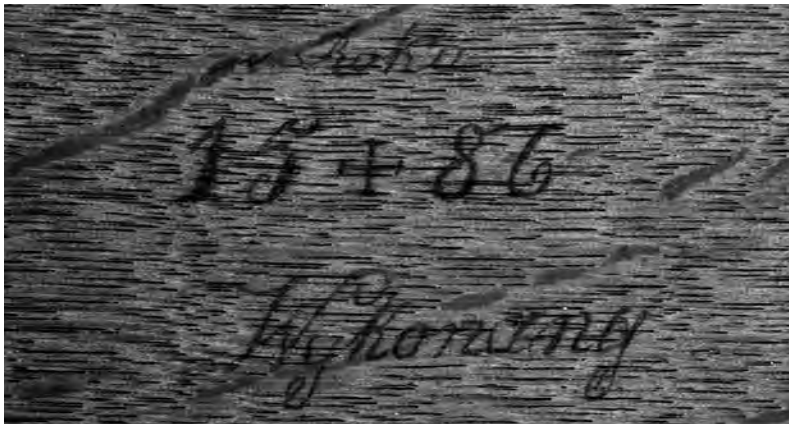 Roku
15 + 86
Wykonany